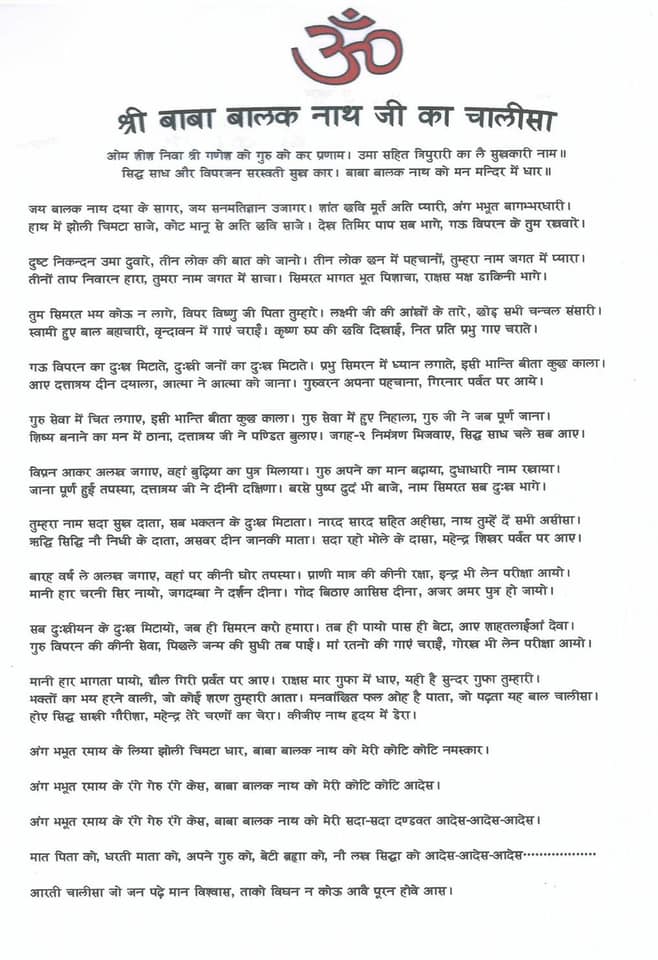 ॐ
श्री बाबा बालक नाथ जी का चालीसा
ओम शीश निवा श्री गणेश को गुरु को कर प्रणाम। उमा सहित त्रिपुरारी का लै सुखकारी नाम॥
सिद्ध साध और विपरजन सरस्वती सुख कार। बाबा बालक नाथ को मन मन्दिर में धार॥
जय बालक नाथ दया के सागर, जय सनमतिज्ञान उजागर। शांत छवि मूर्त अति प्यारी, अंग भभूत बागम्भरधारी।
हाथ में झोली चिमटा साजे, कोट भानू से अति छवि साजे। देख तिमिर पाप सब भागे, गऊ विपरन के तुम रखवारे।
दुष्ट निकन्दन उमा दुवारे, तीन लोक की बात को जानो। तीन लोक छन में पहचानों, तुम्हरा नाम जगत में प्यारा।
तीनों ताप निवारन हारा, तुमरा नाम जगत में साचा। सिमरत भागत भूत पिशाचा, राक्षस मक्ष डाकिनी भागे।
तुम सिमरत भय कोऊ न लागे, विपर विष्णु जी पिता तुम्हारे। लक्ष्मी जी की आंखों के तारे, छोड़ सभी चन्चल संसारी।
स्वामी हुए बाल बह्मचारी, वृन्दावन में गाएं चराईं। कृष्ण रुप की छवि दिखाई, नित प्रति प्रभु गाए चराते।
गऊ विपरन का दुःख मिटाते, दुःखी जनों का दुःख मिटाते। प्रभु सिमरन में ध्यान लगाते, इसी भान्ति बीता कुछ काला।
आए दत्तात्रय दीन दयाला, आत्मा ने आत्मा को जाना। गुरुवरन अपना पहचाना, गिरनार पर्वत पर आये।
गुरु सेवा में चित लगाए, इसी भान्ति बीता कुछ काला। गुरु सेवा में हुए निहाला, गुरु जी ने जब पूर्ण जाना।
शिष्य बनाने का मन में ठाना, दत्तात्रय जी ने पण्डित बुलाए। जगह-२ निमंत्रण भिजवाए, सिद्ध साध चले सब आए।
विप्रन आकर अलख जगाए, वहां बुढ़िया का पुत्र मिलाया। गुरु अपने का मान बढ़ाया, दुधाधारी नाम रखाया।
जाना पूर्ण हुई तपस्या, दत्तात्रय जी ने दीनी दक्षिणा। बरसे पुष्प दुदं भी बाजे, नाम सिमरत सब दुःख भागे।
तुम्हरा नाम सदा सुख दाता, सब भक्तन के दुःख मिटाता। नारद सारद सहित अहीसा, नाथ तुम्हें दें सभी असीसा।
ऋद्धि सिद्धि नौ निधी के दाता, असवर दीन जानकी माता। सदा रहो भोले के दासा, महेन्द्र शिखर पर्वत पर आए।
बारह वर्ष ले अलख जगाए, वहां पर कीनी घोर तपस्या। प्राणी मात्र की कीनी रक्षा, इन्द्र भी लेन परीक्षा आयो।
मानी हार चरनी सिर नायो, जगदम्बा ने दर्शन दीना। गोद बिठाए आसिस दीना, अजर अमर पुत्र हो जायो।
सब दुःखीयन के दुःख मिटायो, जब ही सिमरन करो हमारा। तब ही पायो पास ही बेटा, आए शाहतलाईआं देवा।
गुरु विपरन की कीनी सेवा, पिछले जन्म की सुधी तब पाईं। मां रतनो की गाएं चराईं, गोरख भी लेन परीक्षा आयो।
मानी हार भागता पायो, धौल गिरी प्रर्वत पर आए। राक्षस मार गुफा में धाए, यही है सुन्दर गुफा तुम्हारी।
भक्तों का भय हरने वाली, जो कोई शरण तुम्हारी आता। मनवांखित फल ओह है पाता, जो पढ़ता यह बाल चालीसा।
होए सिद्ध साखी गौरीशा, महेन्द्र तेरे चरणों का चेरा। कीजीए नाथ हृदय में डेरा।
अंग भभूत रमाय के लिया झोली चिमटा धार, बाबा बालक नाथ को मेरी कोटि कोटि नमस्कार।
अंग भभूत रमाय के रंगे गेरु रंगे केस, बाबा बालक नाथ को मेरी कोटि कोटि आदेस।
अंग भभूत रमाय के रंगे गेरु रंगे केस, बाबा बालक नाथ को मेरी सदा-सदा दण्डवत आदेस-आदेस-आदेस।
मात पिता को, धरती माता को, अपने गुरु को, बेटी ब्रह्मा को, नौ लख सिद्धा को आदेस-आदेस-आदेस..................
आरती चालीसा जो जन पढ़े मान विश्वास, ताको विघन न कोऊ आवै पूरन होवे आस।